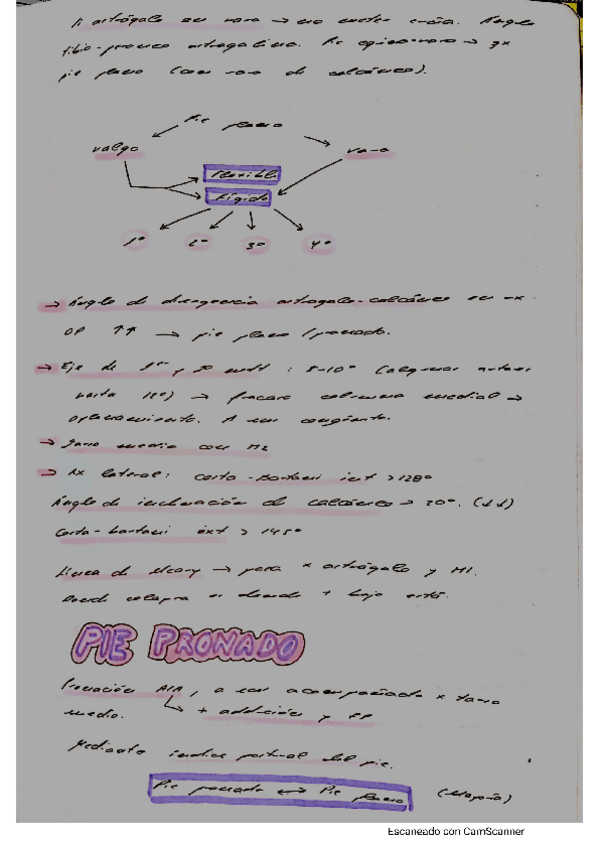 Si astrágalo en varo → no meter cuña. Ángulo
tibio-peroneo astragalino. Pie equino-varo →
pie plano (con varo de calcáneo).
Pie plano
valgo
varo
Flexible
Rígido
1º 2º 3º 4º
→ Ángulo de divergencia astrágalo-calcáneo en rx
DP ↑↑ → pie plano/pronado.
→ Eje de 1er y 5º mtt : 8-10º (algunos autores
hasta 12º) → fracaso columna medial →
aplanamiento. A ser congénito.
→ medio con M2
→ Rx lateral: Costa-Bartani int > 128º
Ángulo de inclinación de calcáneo > 20º. (↓↓)
Costa-bartani ext > 145º
Línea de Meary → pasa x astrágalo y M1.
Donde colapsa es donde + bajo está.
PIE PRONADO
Pronación AIA, a ser acompañada x tarso
medio. ↳ + abducción y FP
Mediante índice postural del pie.
Pie pronado ↔ Pie plano